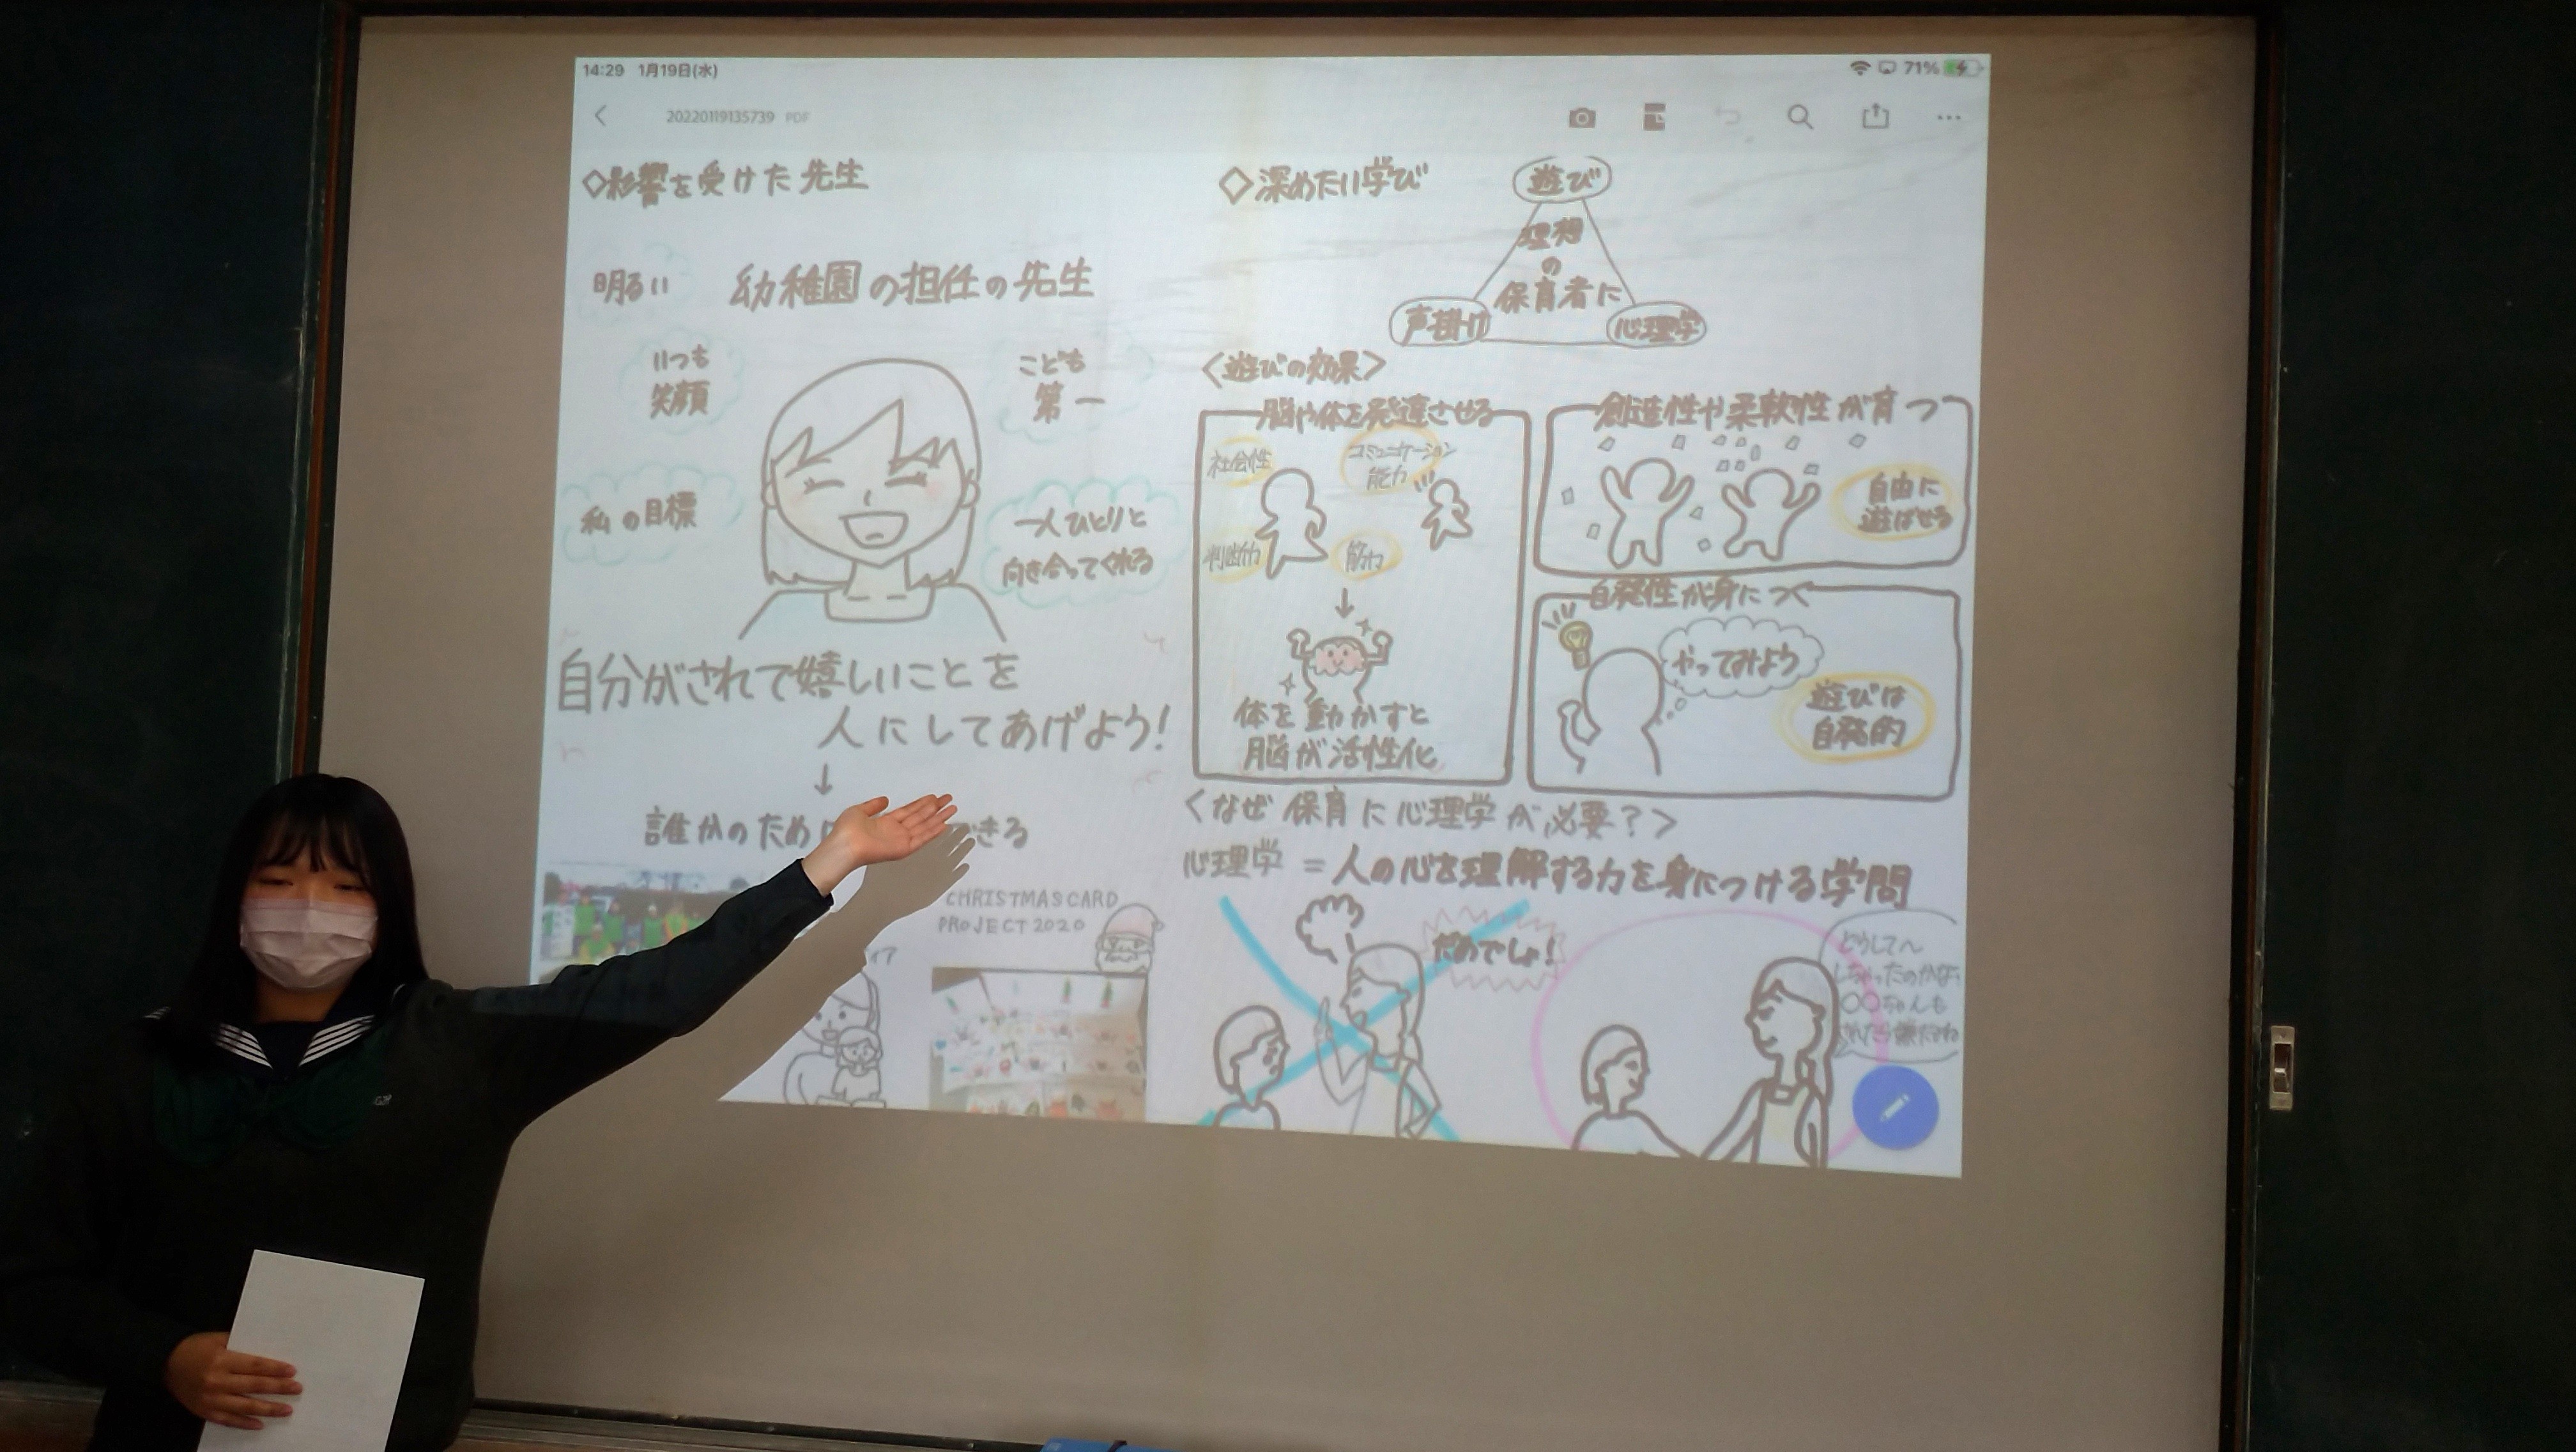 14:29 1月19日(水)
71%
20220119135739 PDF
◇影響を受けた先生
明るい
幼稚園の担任の先生
いつも
笑顔
こども
第一
私の目標
一人ひとりと
向き合ってくれる
自分がされて嬉しいことを
人にしてあげよう!
↓
誰かのため
きる
CHRISTMAS CARD
PROJECT 2020
◇深めたい学び
遊び
理想
の
保育者に
声掛け
心理学
<遊びの効果>
脳や体を発達させる
社会性
コミュニケーション
能力
判断力
筋力
↓
体を動かすと
脳が活性化
創造性や柔軟性が育つ
自由に
遊ばせる
自発性が身につく
やってみよう
遊びは
自発的
<なぜ保育に心理学が必要?>
心理学=人の心を理解する力を身につける学問
だめでしょ!
どうして〜
しちゃったのかな
○○ちゃんも